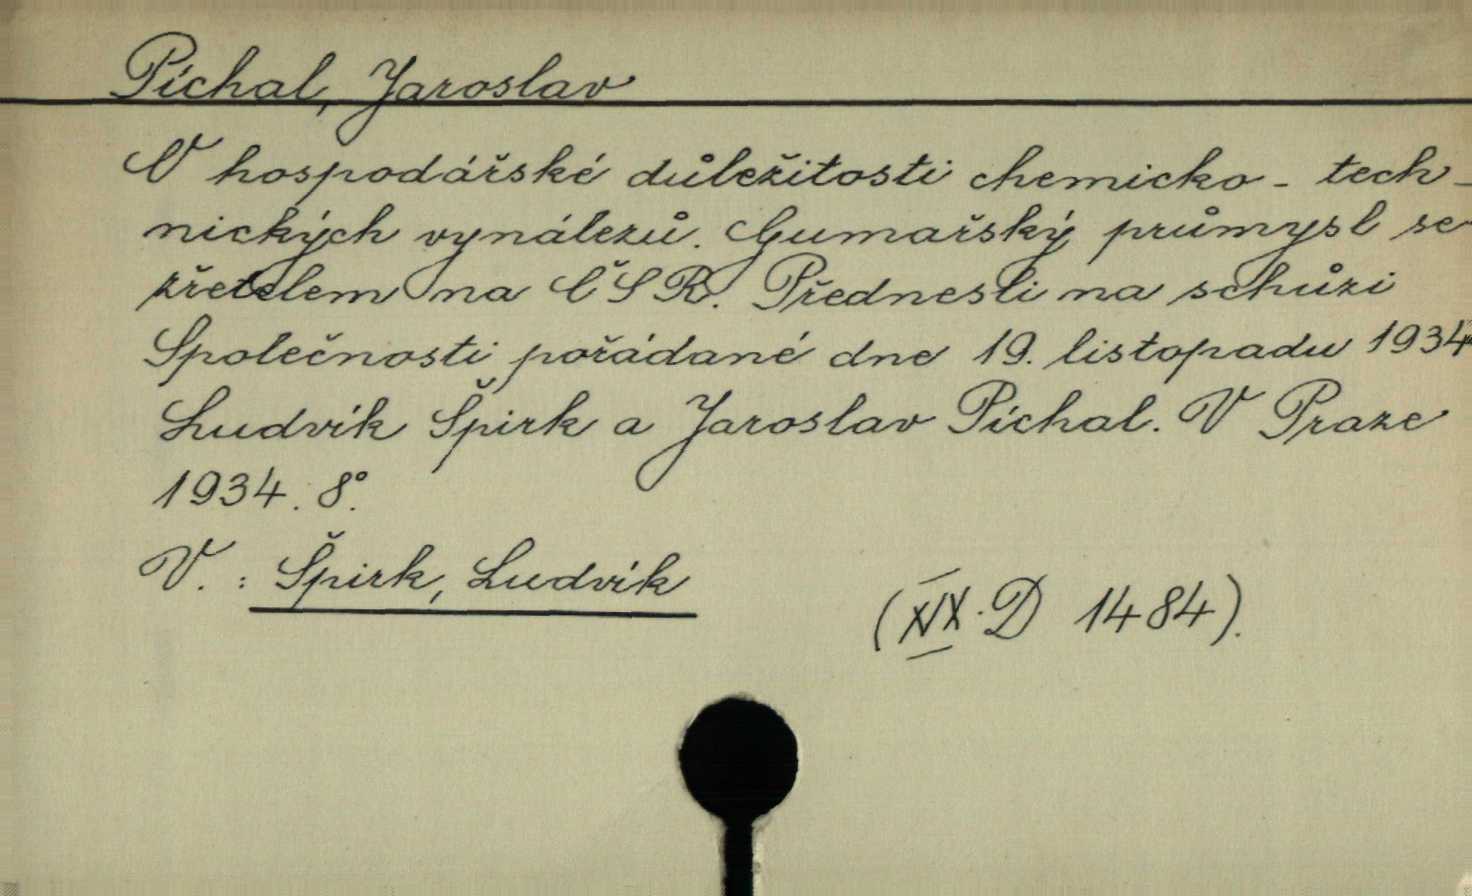 Píchal, Jaroslav
O hospodářské důležitosti chemicko-tech-
nických vynálezů. Gumařský průmysl se
zřetelem na ČSR. Přednesli na schůzi
Společnosti pořádané dne 19. listopadu 1934
Ludvík Špirk a Jaroslav Píchal. V Praze
1934. 8°.
V.: Špirk, Ludvík
(XIX. D 1484).